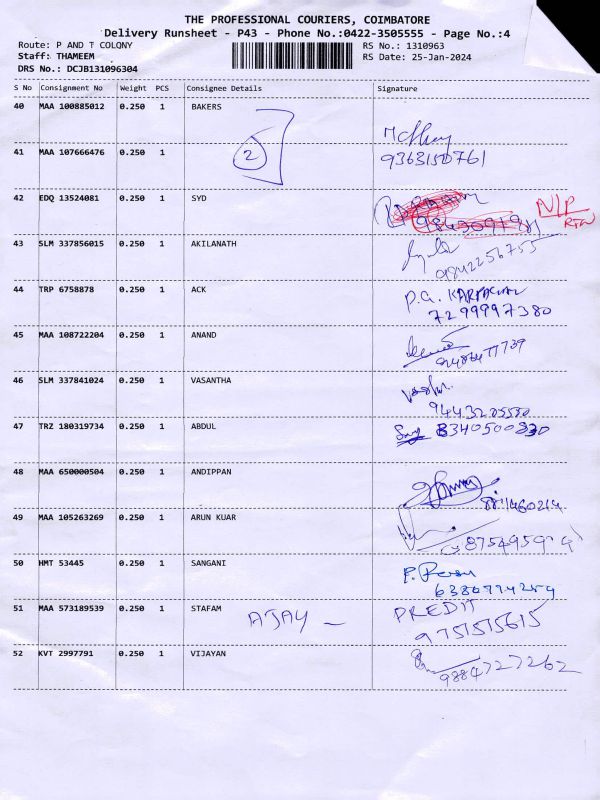 THE PROFESSIONAL COURIERS, COIMBATORE
Delivery Runsheet - P43 - Phone No.:0422-3505555 - Page No.:4
Route: P AND T COLONY RS No.: 1310963
Staff: THAMEEM RS Date: 25-Jan-2024
DRS No.: DCJB131096304
S No Consignment No Weight PCS Consignee Details Signature
40 MAA 100885012 0.250 1 BAKERS
2
41 MAA 107666476 0.250 1 9363150761
42 EDQ 13524081 0.250 1 SYD N/P
RTN
43 SLM 337856015 0.250 1 AKILANATH
9842256755
44 TRP 6758878 0.250 1 ACK P.G.
7299997380
45 MAA 108722204 0.250 1 ANAND
46 SLM 337841024 0.250 1 VASANTHA
9443205550
47 TRZ 180319734 0.250 1 ABDUL
48 MAA 650000504 0.250 1 ANDIPPAN
49 MAA 105263269 0.250 1 ARUN KUAR
50 HMT 53445 0.250 1 SANGANI
51 MAA 573189539 0.250 1 STAFAM AJAY — PREDIT
9751515615
52 KVT 2997791 0.250 1 VIJAYAN
9884727262